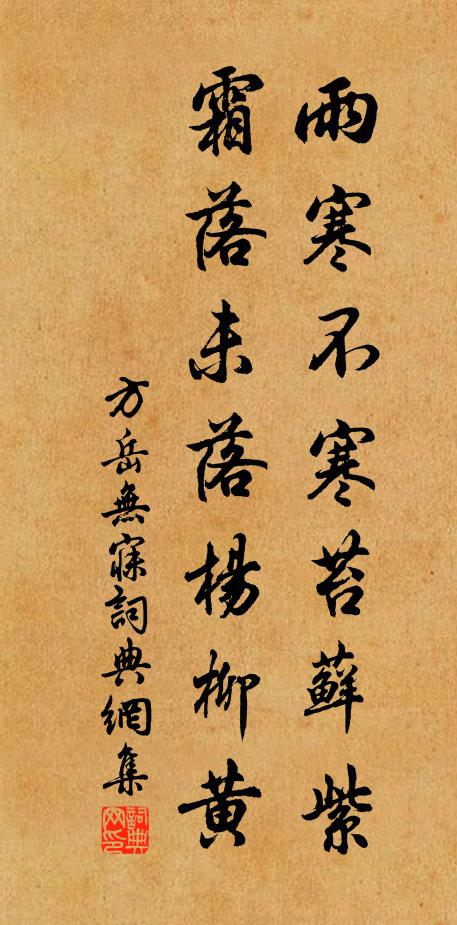 雨寒不寒苔蘚紫
霜落未落楊柳黄
方岳無寐詞典網集
詞典网印